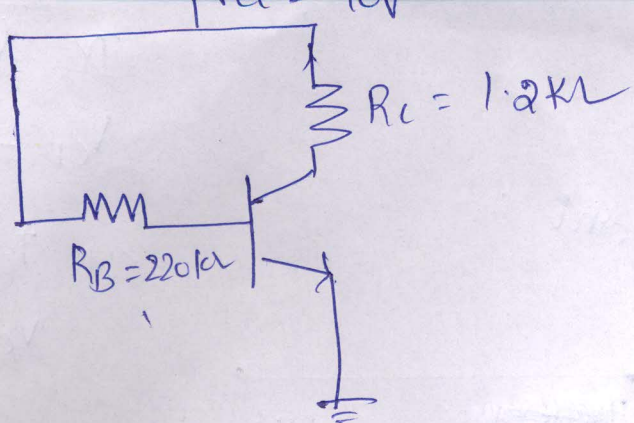 RC = 1.2KΩ
RB=220kΩ